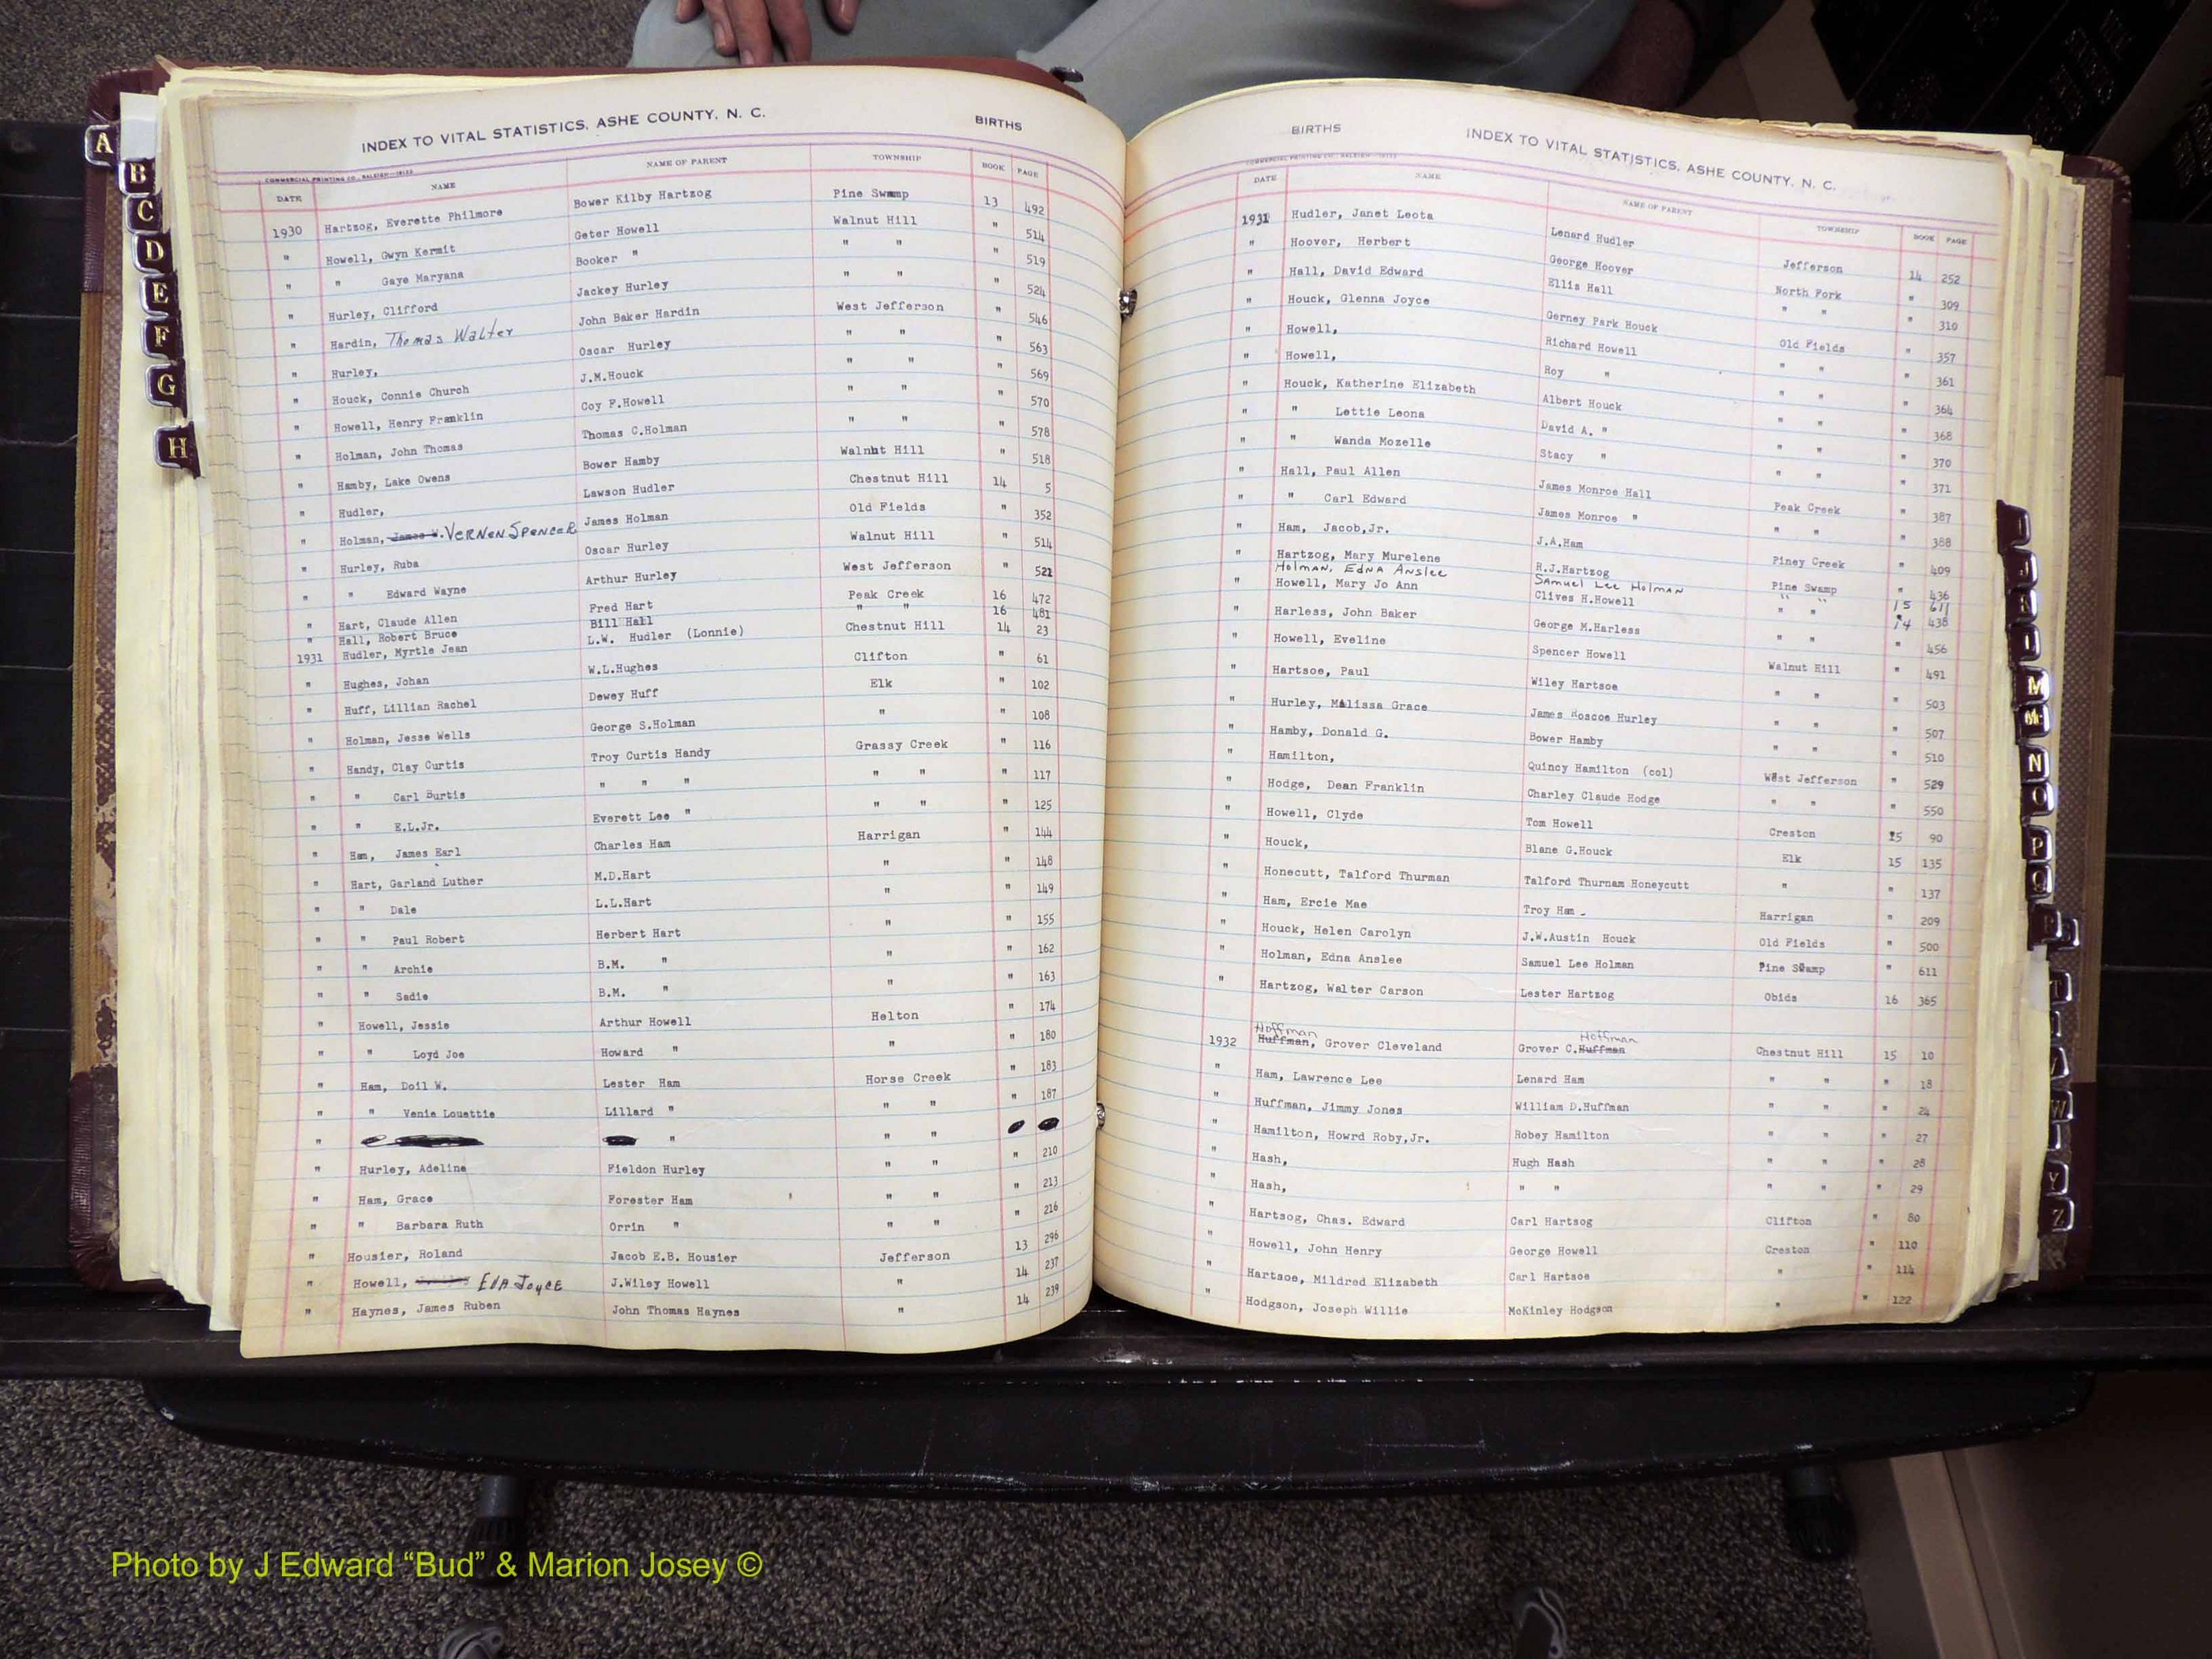 INDEX TO VITAL STATISTICS, ASHE COUNTY, N. C. BIRTHS
COMMERCIAL PRINTING CO., RALEIGH
DATE NAME NAME OF PARENT TOWNSHIP BOOK PAGE
1930 Hartzog, Everette Philmore Bower Kilby Hartzog Pine Swamp 13 492
" Howell, Gwyn Kermit Geter Howell Walnut Hill " 514
" " Gaye Maryana Booker " " " " 519
" Hurley, Clifford Jackey Hurley " " " 524
" Hardin, Thomas Walter John Baker Hardin West Jefferson " 546
" Hurley, Oscar Hurley " " " 563
" Houck, Connie Church J.M.Houck " " " 569
" Howell, Henry Franklin Coy F.Howell " " " 570
" Holman, John Thomas Thomas C.Holman " " " 578
" Hamby, Lake Owens Bower Hamby Walnut Hill " 518
" Hudler, Lawson Hudler Chestnut Hill 14 5
" Holman, James W. VERNEN SPENCER James Holman Old Fields " 352
" Hurley, Ruba Oscar Hurley Walnut Hill " 514
" " Edward Wayne Arthur Hurley West Jefferson " 521
" Hart, Claude Allen Fred Hart Peak Creek 16 472
" Hall, Robert Bruce Bill Hall " " 16 481
1931 Hudler, Myrtle Jean L.W. Hudler (Lonnie) Chestnut Hill 14 23
" Hughes, Johan W.L.Hughes Clifton " 61
" Huff, Lillian Rachel Dewey Huff Elk " 102
" Holman, Jesse Wells George S.Holman " " 108
" Handy, Clay Curtis Troy Curtis Handy Grassy Creek " 116
" " Carl Burtis " " " " " " 117
" " E.L.Jr. Everett Lee " " " " 125
" Ham, James Earl Charles Ham Harrigan " 144
" Hart, Garland Luther M.D.Hart " " 148
" " Dale L.L.Hart " " 149
" " Paul Robert Herbert Hart " " 155
" " Archie B.M. " " " 162
" " Sadie B.M. " " " 163
" Howell, Jessie Arthur Howell Helton " 174
" " Loyd Joe Howard " " " 180
" Ham, Doil W. Lester Ham Horse Creek " 183
" " Venie Louettie Lillard " " " " 187
" " " "
" Hurley, Adeline Fieldon Hurley " " " 210
" Ham, Grace Forester Ham " " " 213
" " Barbara Ruth Orrin " " " " 216
" Housier, Roland Jacob E.B. Housier Jefferson 13 296
" Howell, EVA Joyce J.Wiley Howell " 14 237
" Haynes, James Ruben John Thomas Haynes " 14 239
BIRTHS INDEX TO VITAL STATISTICS, ASHE COUNTY, N. C.
COMMERCIAL PRINTING CO., RALEIGH
DATE NAME NAME OF PARENT TOWNSHIP BOOK PAGE
1931 Hudler, Janet Leota Lenard Hudler Jefferson 14 252
" Hoover, Herbert George Hoover North Fork " 309
" Hall, David Edward Ellis Hall " " " 310
" Houck, Glenna Joyce Gerney Park Houck Old Fields " 357
" Howell, Richard Howell " " " 361
" Howell, Roy " " " " 364
" Houck, Katherine Elizabeth Albert Houck " " " 368
" " Lettie Leona David A. " " " " 370
" " Wanda Mozelle Stacy " " " " 371
" Hall, Paul Allen James Monroe Hall Peak Creek " 387
" " Carl Edward James Monroe " " " " 388
" Ham, Jacob,Jr. J.A.Ham Piney Creek " 409
" Hartzog, Mary Murelene R.J.Hartzog Pine Swamp " 436
Holman, EDNA Anslee Samuel Lee Holman " " 15 611
" Howell, Mary Jo Ann Clives H.Howell " " 14 438
" Harless, John Baker George M.Harless " " " 456
" Howell, Eveline Spencer Howell Walnut Hill " 491
" Hartsoe, Paul Wiley Hartsoe " " " 503
" Hurley, Malissa Grace James Roscoe Hurley " " " 507
" Hamby, Donald G. Bower Hamby " " " 510
" Hamilton, Quincy Hamilton (col) West Jefferson " 529
" Hodge, Dean Franklin Charley Claude Hodge " " " 550
" Howell, Clyde Tom Howell Creston 15 90
" Houck, Blane G.Houck Elk 15 135
" Honecutt, Talford Thurman Talford Thurnam Honeycutt " " 137
" Ham, Ercie Mae Troy Ham Harrigan " 209
" Houck, Helen Carolyn J.W.Austin Houck Old Fields " 500
" Holman, Edna Anslee Samuel Lee Holman Pine Swamp " 611
" Hartzog, Walter Carson Lester Hartzog Obids 16 365
Hoffman Hoffman
1932 Huffman, Grover Cleveland Grover C.Huffman Chestnut Hill 15 10
" Ham, Lawrence Lee Lenard Ham " " " 18
" Huffman, Jimmy Jones William D.Huffman " " " 24
" Hamilton, Howrd Roby,Jr. Robey Hamilton " " " 27
" Hash, Hugh Hash " " " 28
" Hash, " " " " " 29
" Hartsog, Chas. Edward Carl Hartsog Clifton " 80
" Howell, John Henry George Howell Creston " 110
" Hartsoe, Mildred Elizabeth Carl Hartsoe " " 114
" Hodgson, Joseph Willie McKinley Hodgson " " 122
A
B
C
D
E
F
G
H
M
Mc
N
O
P
Q
R
T
W
Y
Z
Photo by J Edward “Bud” & Marion Josey ©